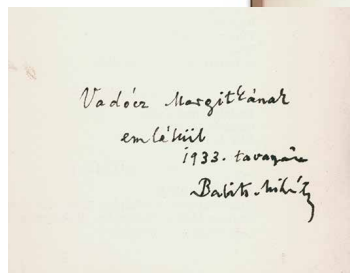 Vadócz Margitkának
emlékül
1933. tavaszán
Babits Mihály